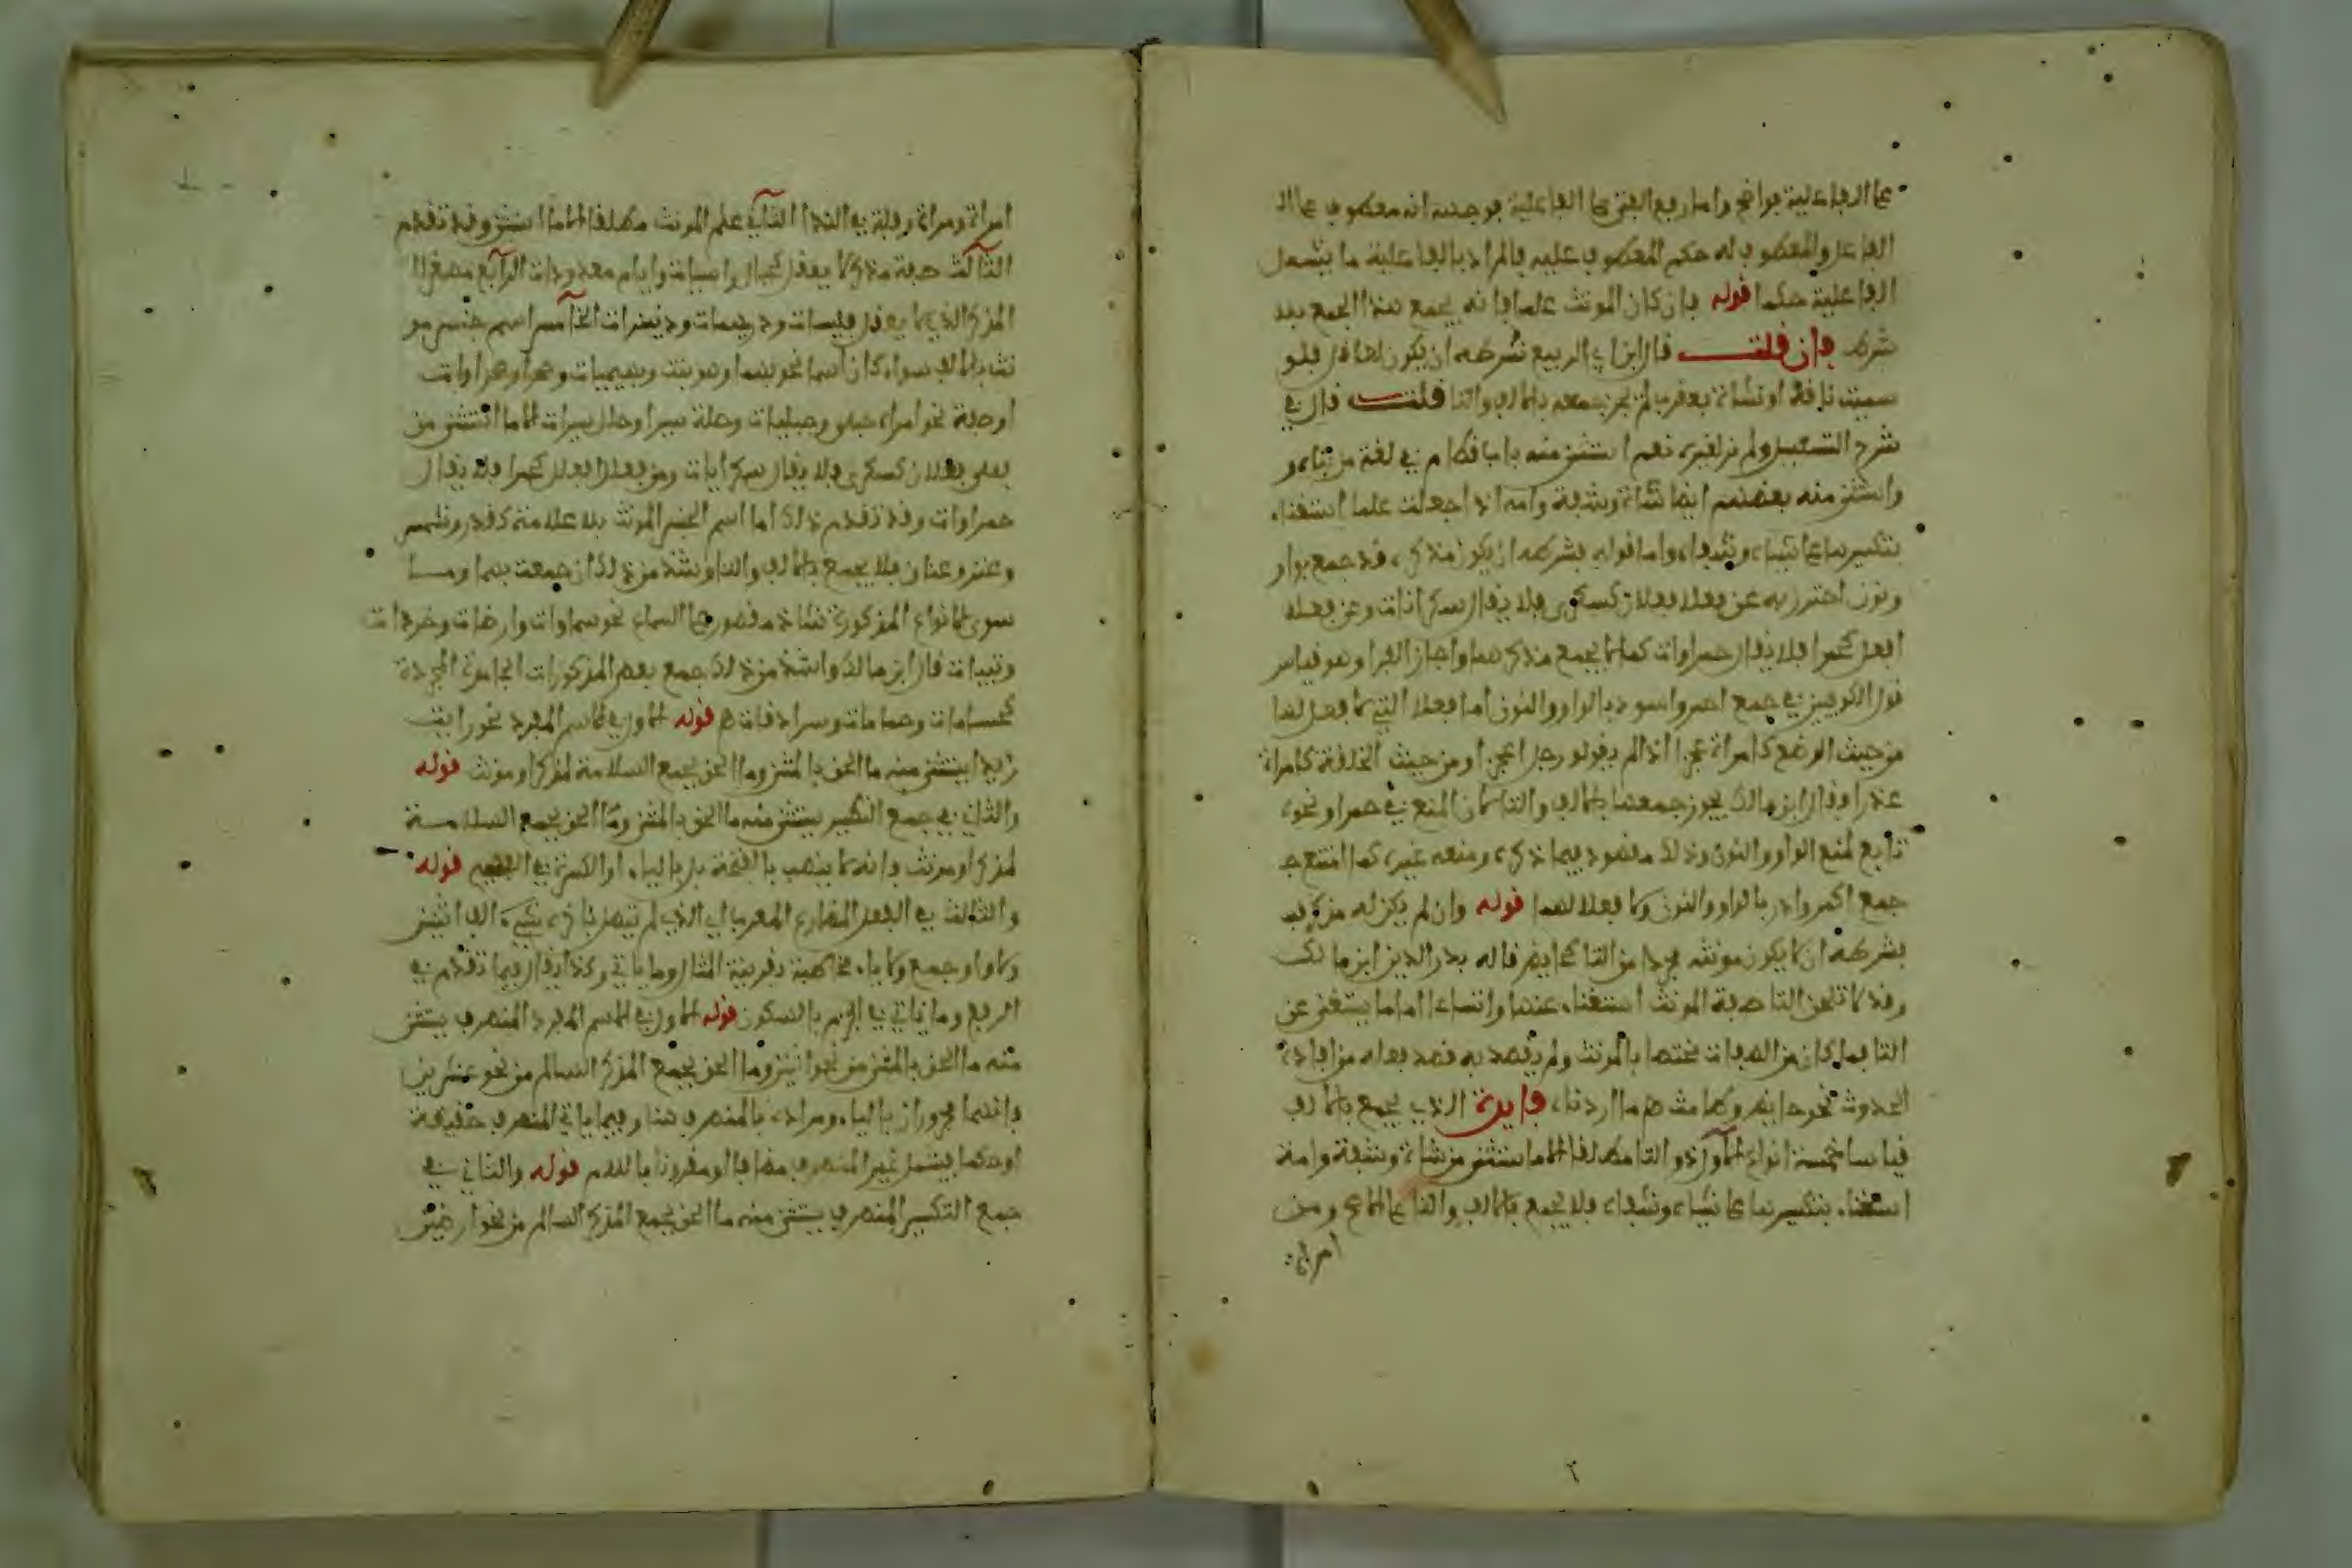 على الفاعلية فواضح واما رفع الفتى على الفاعلية فوجهه انه معطوف على ال
الفاعل والمعطوف له حكم المعطوف عليه فالمراد بالفاعلية ما يشمل
الفاعلية حكما قوله فان كان المونث علما فانه يجمع هذا الجمع بلا
شرط فان قلت قال ابن ابي الربيع شرطه ان يكون لعاقل فلو
سميت ناقة او شاة بعقرب لم يجز جمعه بالالف والتا قلت قال في
شرح التسهيل ولم نر لغيره نعم استثنى منه باب قطام في لغة من بناه و
واستثنى منه بعضهم ايضا شاة وشفة وامه اذا جعلت علما استغناء
بتكسيرها على شياه وشفاه واما قوله بشرطه ان يكون مذكره قد جمع بواو
ونون احترز به عن فعلا فعلان كسكرى فلا يقال سكرانات وعن فعلاء
افعل كحمرا فلا يقال حمراوات كما لا يجمع مذكرهما واجاز الفرا وهو قياس
قول الكوفيين في جمع احمر واسود بالواو والنون اما فعلاء التي لا افعل لها
من حيث الوضع كامراة عجزا اذ لم يقولو رجل اعجز او من حيث الخلقة كامراة
عذرا وقال ابن مالك يجوز جمعها بالالف والتا لان المنع في حمرا ونحوه
تابع لمنع الواو والنون وذلك مفقود فيما ذكره ومنعه غيره كما امتنع
جمع اكمر وادر بالواو والنون ولا فعلا لهما قوله وان لم يكن له مذكر فـ
بشرطه ان لا يكون مونثه مجردا من التا كحايض قاله بدر الدين ابن مالك
وقد لا تلحق التا صفة المونث استغناء عنها واتساعا اما ما يستغنى عن
التا فما كان من الصفات مختصا بالمونث ولم يقصد به قصد فعله من افادة
الحدوث نحو حايض وطامث ما اردناه فايدة الذي يجمع بالالف
قياسا خمسة انواع الاول ذو التا مطلقا الا ما استثنى من شاة وشفة وامة
استغناء بتكسيرها على شياه وشفاه فلا يجمع بالالف والتا على الاصح ومن
امراة
امراة ومراة وقلة في الندا الثاني علم المونث مطلقا الا ما استثنى وقد تقدم
الثالث صفة مذكر لا يعقل كجبال راسيات وايام معدودات الرابع مصغر ا
المذكر الذي لا يعقل فليسات ودريهمات ودنينيرات الخامس اسم جنس مو
نث بالالف سواء كان اسما نحو بهما وبهميات وصحرا وصحراوات
او صفة نحو امراء حبلى وحبليات وحلة سيرا وحلل سيرات الا ما استثنى من
فعلى فعلان كسكرى فلا يقال سكرايات ومن فعلا افعل كحمرا فلا يقال
حمراوات وقد تقدم ذلك اما اسم الجنس المونث بلا علامة كقدر وشمس
وعنز وعناق فلا يجمع بالالف والتا وشذ من ذلك ان جمعت بهما وما
سوى الانواع المذكورة شاذ مقصور على السماع نحو سماوات وارضات وخردات
وثيبات قال ابن مالك واشذ من ذلك جمع بعض المذكورات الجامدة المجردة
كحسامات وحمامات وسرادقات قوله الاول في الاسم المفرد نحو رايت
زيدا يستثنى منه ما الحق بالمثنى وما الحق بجمع السلامة لمذكر او مونث قوله
والثاني في جمع التكسير يستثنى منه ما الحق بالمثنى وما الحق بجمع السلامة
لمذكر او مونث فانه لا ينصب بالفتحة بل بالياء او الكسرة في قوله
والثالث في الفعل المضارع المعرب اي الذي لم يتصل باخره شيء الف اثنين
ولا واو جمع ولا ياء مخاطبة بقرينة المثال وما ياتي وكذا يقال فيما تقدم في
الرفع وما ياتي في الجزم بالسكون قوله الاول في الاسم المفرد المنصرف يستثنى
منه ما الحق بالمثنى من نحو اثنين وما الحق بجمع المذكر السالم من نحو عشرين
فانهما مجروران بالياء ومراده بالمنصرف هنا وفيما ياتي المنصرف حقيقة
او حكما ليشمل غير المنصرف مضافا او مقرونا باللام قوله والثاني في
جمع التكسير المنصرف يستثنى منه ما الحق بجمع المذكر السالم من نحو ارضين